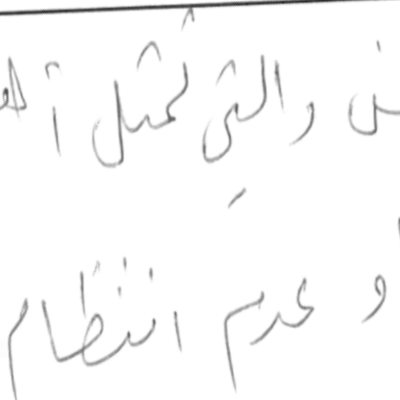 والتي تمثل أ
و عدم انتظام